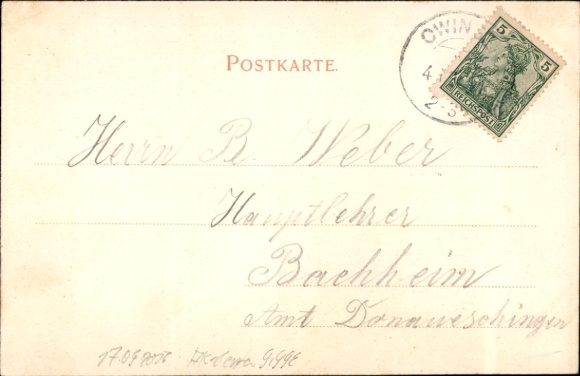 POSTKARTE.
OWIN
4
2-3
5 5
REICHSPOST
Herrn B. Weber
Hauptlehrer
Bachheim
Amt Donaueschingen
17.09 9,99€